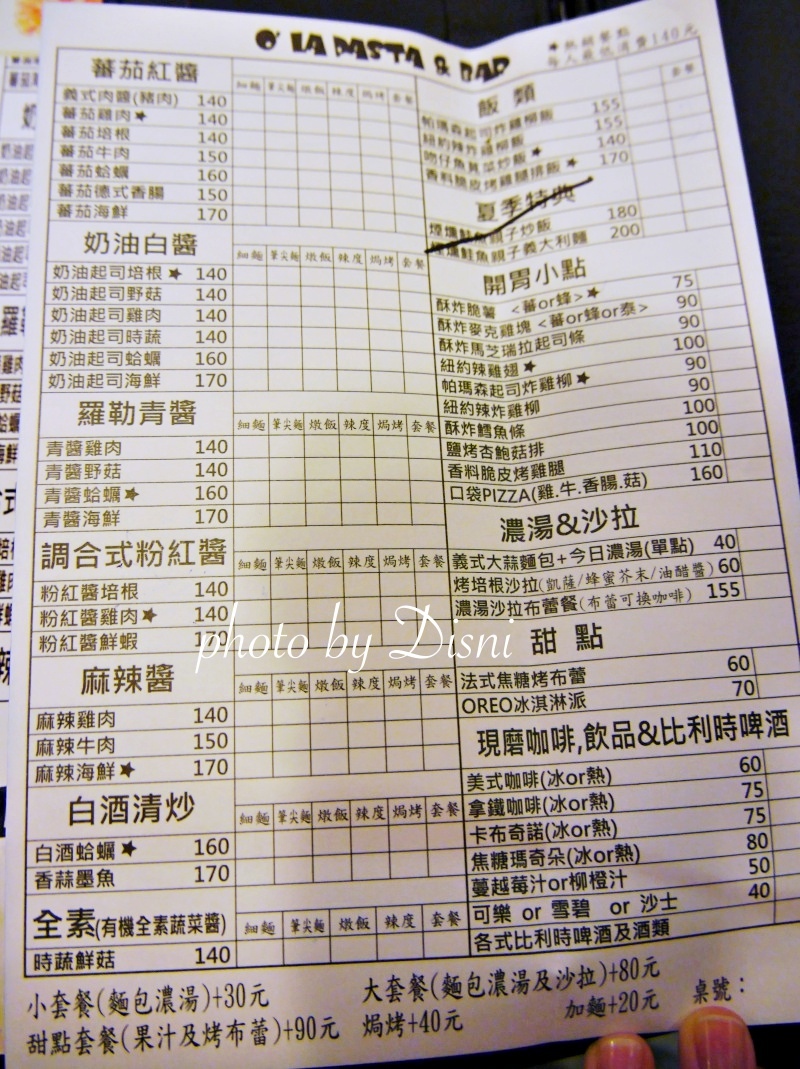 O' LA PASTA & BAR
★熱銷餐點
每人最低消費140元
蕃茄紅醬 細麵 筆尖麵 燉飯 辣度 焗烤 套餐
義式肉醬(豬肉) 140
蕃茄雞肉★ 140
蕃茄培根 140
蕃茄牛肉 150
蕃茄蛤蠣 160
蕃茄德式香腸 150
蕃茄海鮮 170
奶油白醬 細麵 筆尖麵 燉飯 辣度 焗烤 套餐
奶油起司培根★ 140
奶油起司野菇 140
奶油起司雞肉 140
奶油起司時蔬 140
奶油起司蛤蠣 160
奶油起司海鮮 170
羅勒青醬 細麵 筆尖麵 燉飯 辣度 焗烤 套餐
青醬雞肉 140
青醬野菇 140
青醬蛤蠣★ 160
青醬海鮮 170
調合式粉紅醬 細麵 筆尖麵 燉飯 辣度 焗烤 套餐
粉紅醬培根 140
粉紅醬雞肉★ 140
粉紅醬鮮蝦
麻辣醬 細麵 筆尖麵 燉飯 辣度 焗烤 套餐
麻辣雞肉 140
麻辣牛肉 150
麻辣海鮮★ 170
白酒清炒 細麵 筆尖麵 燉飯 辣度 焗烤 套餐
白酒蛤蠣★ 160
香蒜墨魚 170
全素(有機全素蔬菜醬) 細麵 筆尖麵 燉飯 辣度 焗烤 套餐
時蔬鮮菇 140
飯 類 套餐
帕瑪森起司炸雞柳飯 155
紐約辣炸雞柳飯 155
吻仔魚莧菜炒飯★ 140
香料脆皮烤雞腿排飯★ 170
夏季特典
煙燻鮭魚親子炒飯 180
煙燻鮭魚親子義大利麵 200
開胃小點
酥炸脆薯 <蕃or蜂>★ 75
酥炸麥克雞塊<蕃or蜂or泰> 90
酥炸馬芝瑞拉起司條 90
紐約辣雞翅★ 100
帕瑪森起司炸雞柳★ 90
紐約辣炸雞柳 90
酥炸鱈魚條 100
鹽烤杏鮑菇排 100
香料脆皮烤雞腿 110
口袋PIZZA(雞.牛.香腸.菇) 160
濃湯&沙拉
義式大蒜麵包+今日濃湯(單點) 40
烤培根沙拉(凱薩/蜂蜜芥末/油醋醬) 60
濃湯沙拉布蕾餐(布蕾可換咖啡) 155
甜 點
法式焦糖烤布蕾 60
OREO冰淇淋派 70
現磨咖啡,飲品&比利時啤酒
美式咖啡(冰or熱) 60
拿鐵咖啡(冰or熱) 75
卡布奇諾(冰or熱) 75
焦糖瑪奇朵(冰or熱) 80
蔓越莓汁or柳橙汁 50
可樂 or 雪碧 or 沙士 40
各式比利時啤酒及酒類
小套餐(麵包濃湯)+30元 大套餐(麵包濃湯及沙拉)+80元
甜點套餐(果汁及烤布蕾)+90元 焗烤+40元 加麵+20元 桌號：
photo by Disni